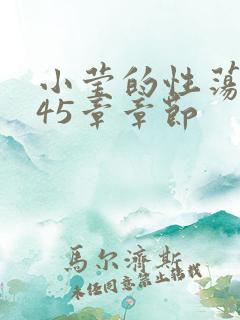 小莹的性荡
45章章节
馬尔濟斯
未经同意禁止转载